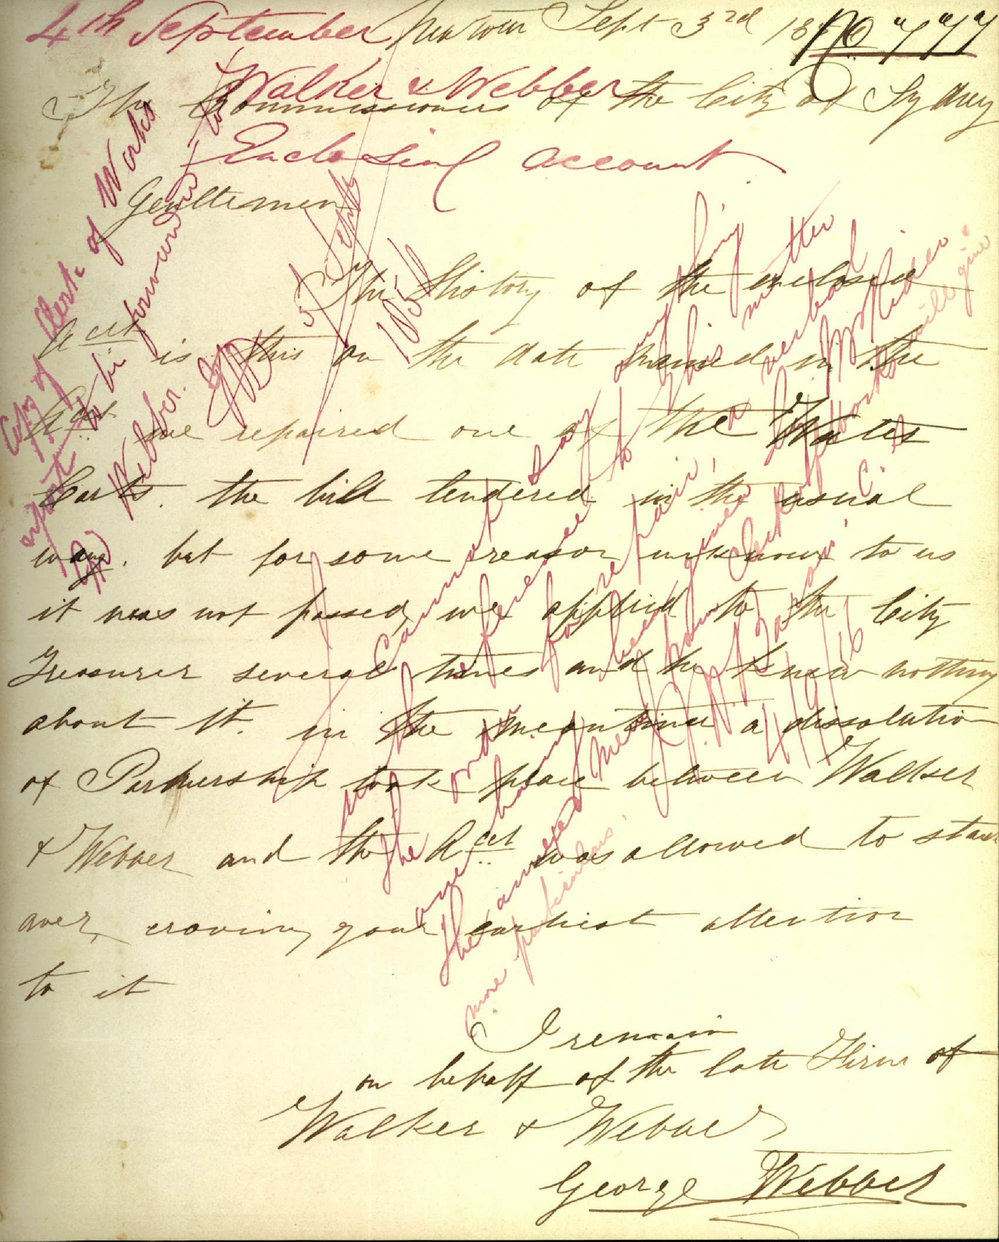 4th September
Newtown Sept 3rd 18
No "777"
Walker & Webber
Enclosing account
The Commissioners of the City of Sydney
Gentlemen
The History of the enclosed
acct is this on the date named in the
acct we repaired one of the Water
Carts. the bill tendered in the usual
way. but for some reason unknown to us
it was not passed, we applied to the City
Treasurer several times and he knew nothing
about it. in the meantime a dissolution
of Partnership took place between Walker
& Webber and the Acct was allowed to stand
over, craving your earliest attention
to it
I remain
on behalf of the late Firm of
Walker & Webber
George Webber
Copy of Clerk of Works
report to be forwarded to
Mr Webber
of Septr
1856
I cannot say anything
with reference to this matter
the order for repair, a verbal
one having been given by Mr Rider
the annexed memo from
more particulars.
Clerk of Works will give
4/9/56